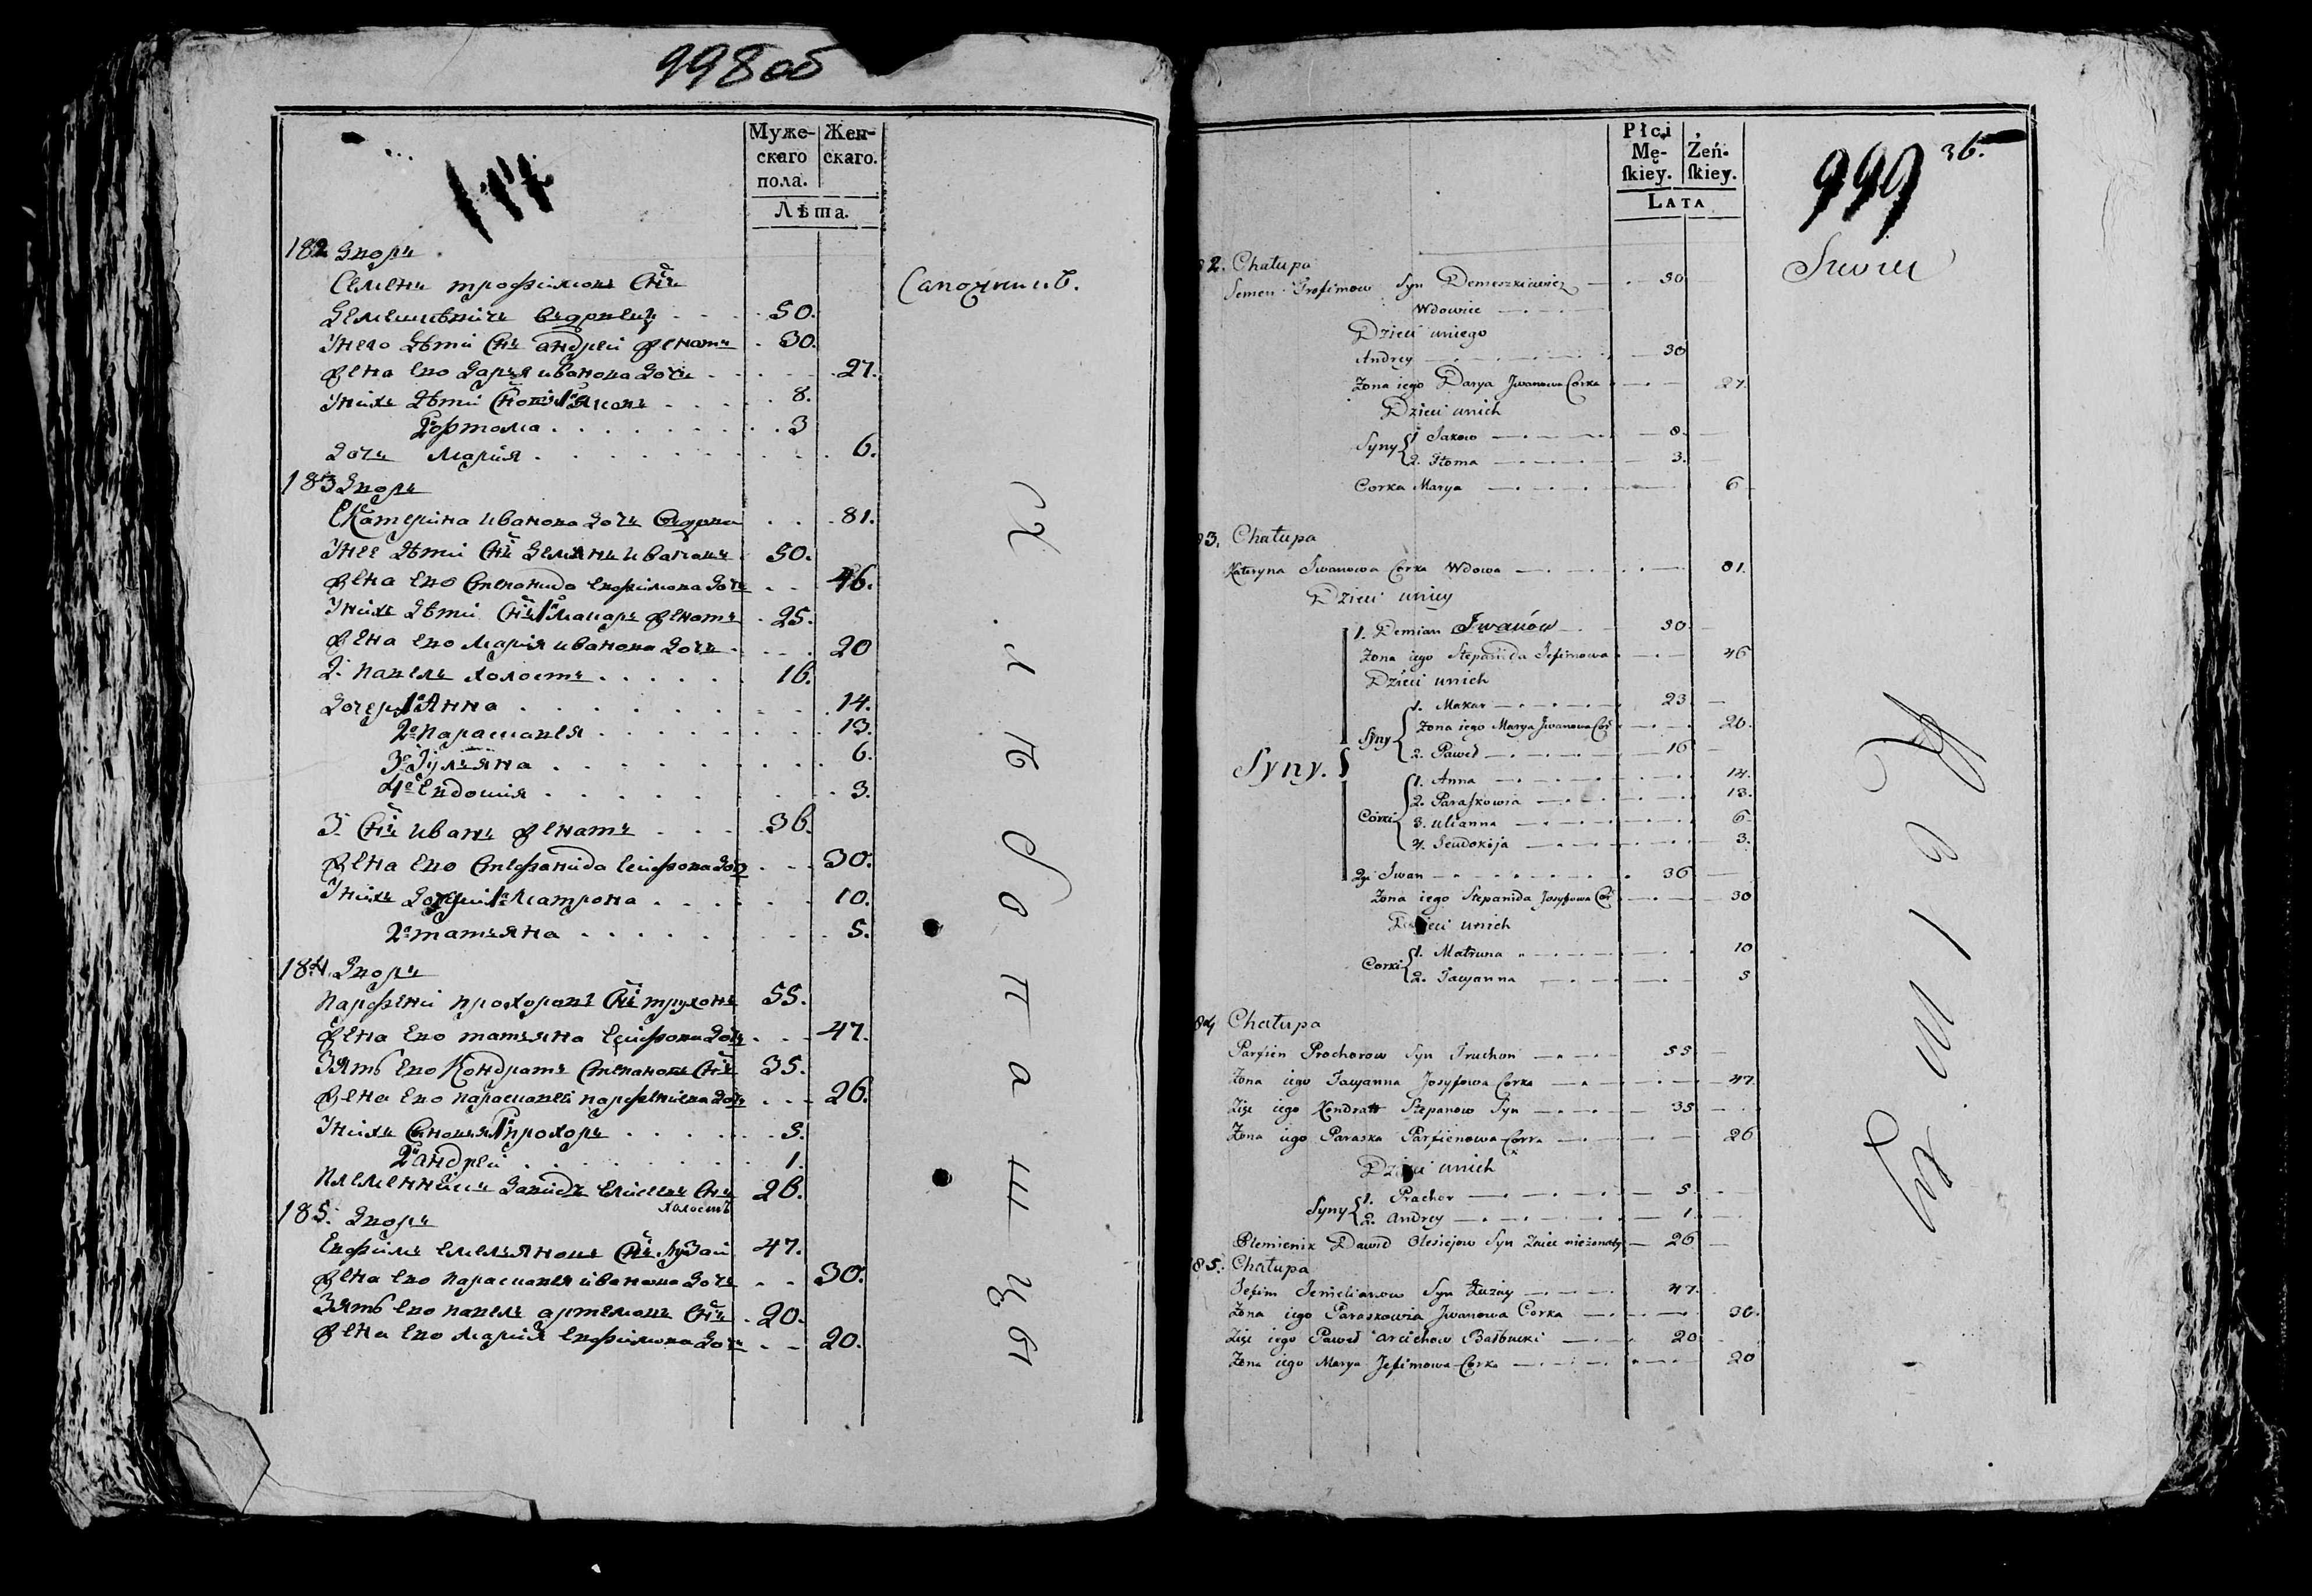 998об
Муже-
скаго
пола.
Жен-
скаго.
Лѣта.
182 Дворъ
Семенъ трофимовъ Снъ Сапожникъ.
Демешкевичъ вдовецъ 50.
Унего дѣти Снъ андрей женатъ 30.
жена Ево дарья иванова дочь 27.
Унихъ дѣти Сновя 1й Яковъ 8.
3
дочь Мария 6.
183 Дворъ
Екатерина иванова дочь вдова 81.
Унее дѣти Снъ Демянъ ивановъ 50.
жена Ево Степанида Ефимова дочь 46.
Унихъ дѣти Снъ 1й Макаръ женатъ 25.
жена Ево Мария иванова дочь 20
2й павелъ холостъ 16.
дочери 1я Анна 14.
2я парасковея 13.
3я Ульяна 6.
4я Евдокия 3.
3й Снъ иванъ женатъ 36.
жена Ево Стефанида Есифова дочь 30.
Унихъ дочери 1я Матрона 10.
2я татьяна 5.
184. Дворъ
парфений прохоровъ Снъ трухонъ 55.
жена Ево татьяна Есифова дочь 47.
Зять Ево Кондратъ Степановъ Снъ 35.
жена Ево парасковея парфениева дочь 26.
Унихъ Сыновя 1й прохоръ 5.
2й андрей 1.
племенникъ давидъ Снъ 26.
холостъ
185. Дворъ
Ефимъ емельяновъ Снъ лузай 47.
жена Ево парасковея иванова дочь 30.
Зять Ево павелъ артемовъ Снъ 20.
жена Ево Мария Ефимова дочь 20.
Хлѣбопашцы
Płci
Mę-
skiey.
Żeń-
skiey.
LATA
999
36.
Szewc
82. Chałupa
Semen Trofimow Syn Demeszkiewicz 50
Wdowiec
Dzieci uniego
Andrey 30
Zona iego Darya Jwanowa Corka 27.
Dzieci unich
Syny 1. Jakow 8.
2. Tłoma 3.
Corka Marya 6
83. Chałupa
Kateryna Iwanowa Corka Wdowa 81.
Dzieci uniey
Syny.
1. Demian Jwanów 50
Zona iego Stepanida Jefimowa 46
Dzieci unich
Syny 1. Makar 23
Zona iego Marya Jwanowa Cor 20.
2. Paweł 16
Córki 1. Anna 14.
2. Paraskowia 13.
3. Ulianna 6
4. Jeudokija 3.
2gi Iwan 36
Zona iego Stepanida Josyfowa Cor 30
Dzieci unich
Corki 1. Matruna 10
2. Tacyanna 5
84 Chałupa
Parfien Prochorow Syn Truchon 55
Zona iego Tacyanna Josyfowa Corka 47.
Zięć iego Kondratt Stepanow Syn 35
Zona iego Paraska Parfienowa Corka 26
Dzieci unich
Syny 1. Prachor 5.
2. Andrey 1.
Plemienik Dawid Olesiejow Syn nieżonaty 26
85. Chałupa
Jefim Jemelianow Syn Łuzay 47.
Zona iego Paraskowia Jwanowa Corka 30.
Zięć iego Paweł Bałbucki 20
Zona iego Marya Jefimowa Corka 20